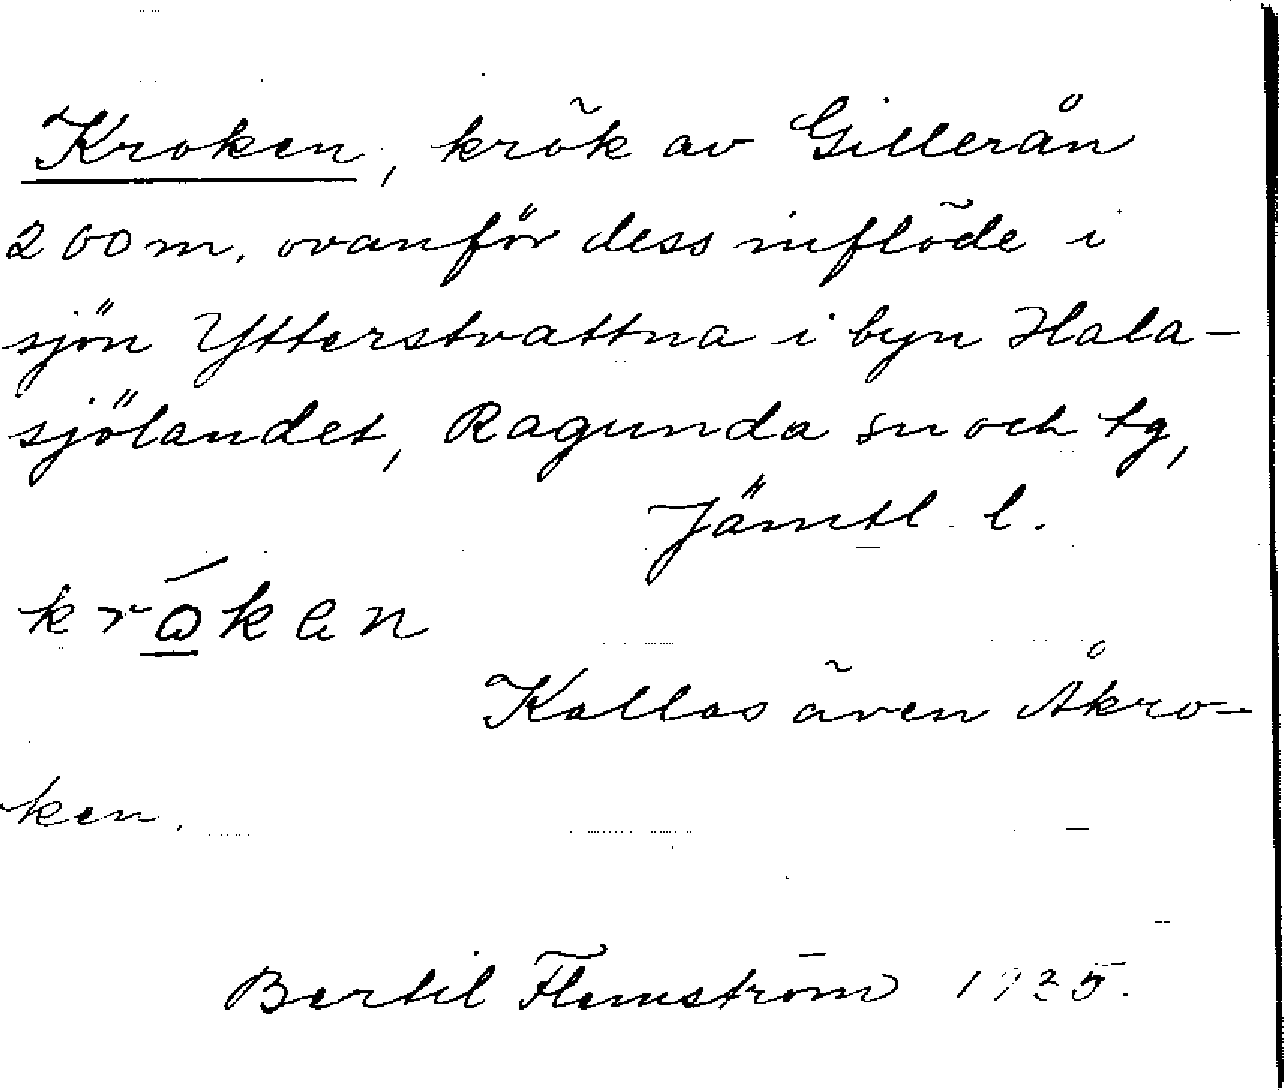 Kroken, krök av Gillerån
200 m. ovanför dess inflöde i
sjön Ytterstvattna i byn Hala-
sjölandet, Ragunda sn och tg,
Jämtl. l.
kken
Kallas även Åkro-
ken.
Bertil Flemström 1935.